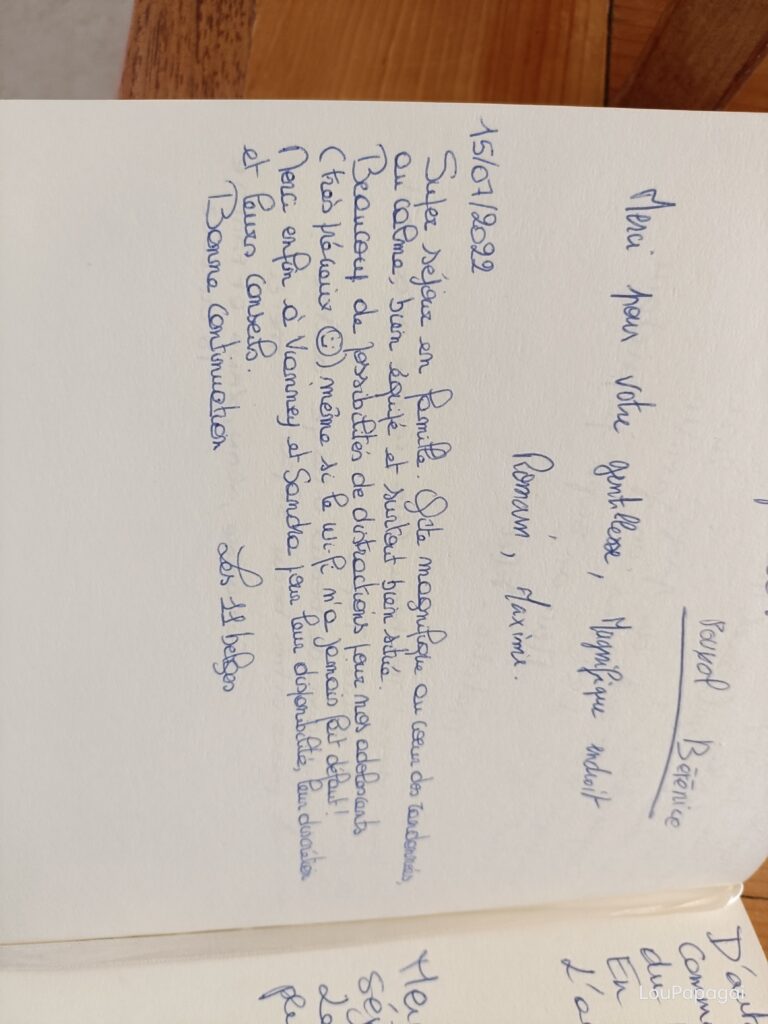 Bérénice
Merci pour votre gentillesse, Magnifique endroit
Romain, Maxime.
15/07/2022
Super séjour en famille. Gîte magnifique au cœur des randonnées,
au calme, bien équipé et surtout bien situé.
Beaucoup de possibilités de distractions pour nos adolescents
(très précieux ☺) même si le wifi n'a jamais fait défaut!
Merci enfin à Vianney et Sandra pour leur disponibilité, leur discrétion
et leurs conseils.
Bonne continuation Les 11 belges
D'aut
Comm
du
En
L'a
Mer
Sé
pl
LouPapagai